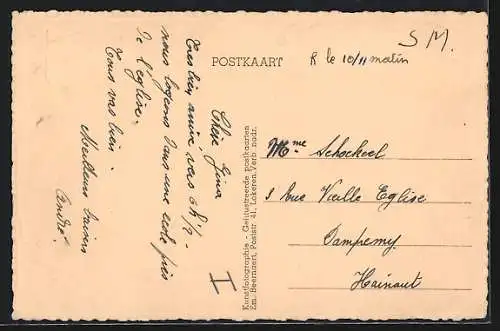 POSTKAART
S M.
R le 10/11 matin
Chère Gina
Très bien arrivé vers 6 h 1/2.
nous logeons dans une école près
de l'église.
Tous vas bien.
Meilleurs baisers
André.
I
Kunstfotographie - Geïllustreerde postkaarten
Em. Beernaert, Poststr. 41, Lokeren. Verb. nadr.
Mme Schockeel
8 Rue Vieille Eglise
Dampremy
Hainaut